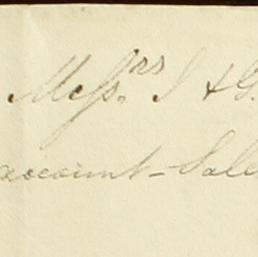 Messrs. J & G.
account Sale